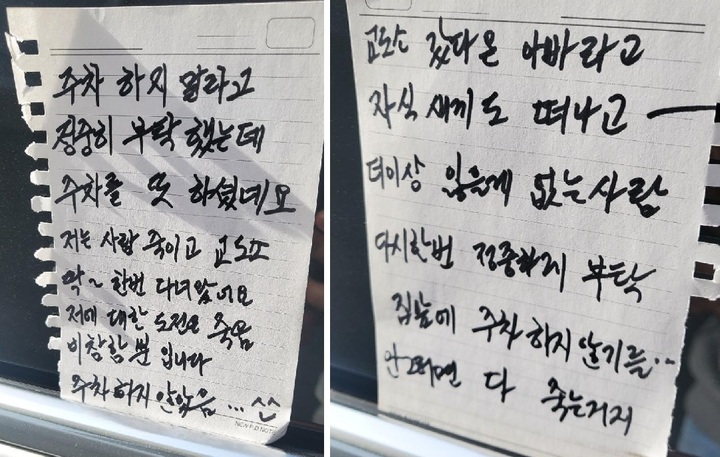 주차 하지 말라고
정중히 부탁 했는데
주차를 또 하셨데요
저는 사람 죽이고 교도소
딱~ 한번 다녀왔어요
저에 대한 도전은 죽음
이참함 뿐 입니다
주차하지 안았음...^^
교도소 갔다온 아빠라고
자식 새끼도 떠나고
더이상 잃을게 없는사람
다시한번 정중하게 부탁
집앞에 주차 하지 않기를..
안그러면 다 죽는거지